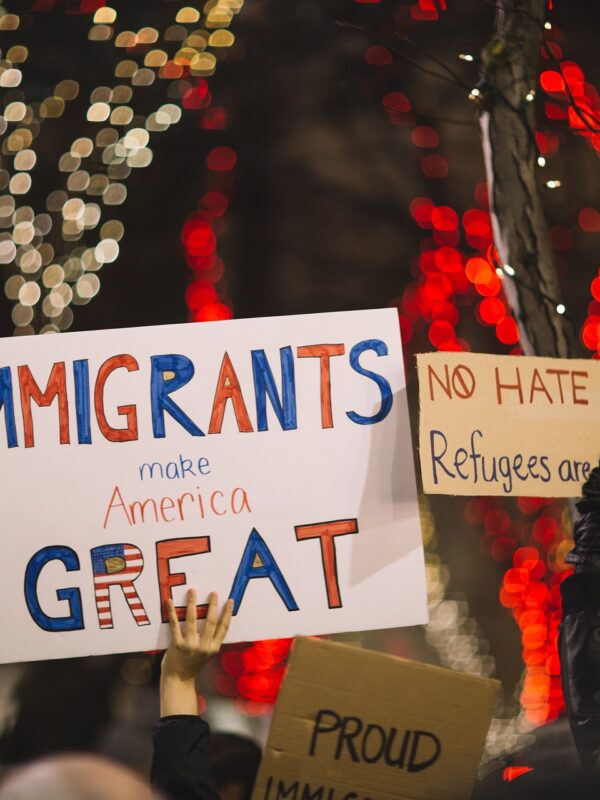 IMMIGRANTS
make
America
GREAT
NO HATE
Refugees are
PROUD
IMMIG